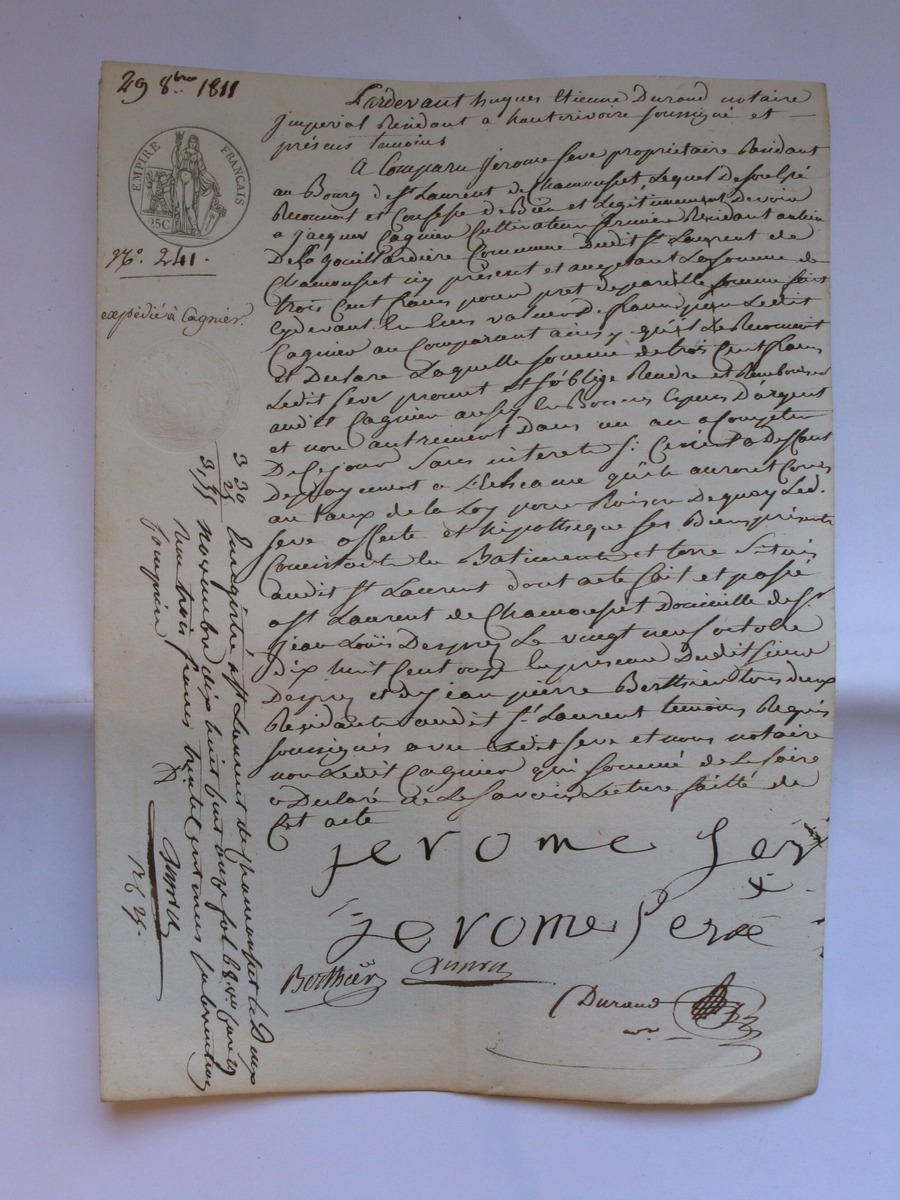 29 8bre 1811
EMPIRE FRANÇAIS
25C
N°. 241.
expédié à Cagnier.
Pardevant hugues Etienne Durand notaire
Imperial Residant a hauterivoire soussigné et
présens temoins
A Comparu Jerome Seve propriétaire Residant
au Bourg de St Laurent de Chamousset, Lequel De Son gré
Reconnoit et Confesse De Bien et Legitimement Devoir
a Jacques Cagnier Cultivateur fermier Residant au lieu
De la gouillardiere Commune Dudit St Laurent de
Chamousset icy présent et aceptant La Somme de
trois Cent francs pour pret de pareille Somme fait
Cydevant En Ecus valeur De france par Ledit
Cagnier au Comparant ainsy qu'il Le Reconnoit
et Declare Laquelle Somme de trois Cent francs
Ledit Seve promet et s'oblige Rendre et Rembourser
audit Cagnier aussy En Bonnes Especes D'argent
et non autrement Dans un an a Compter
De Ce jour Sans interets Si Ce n'est a Deffaut
De payement a L'Echeance qu'ils auront Cours
au taux de la Loy pour Raison De quoy Led.
Seve affecte et hipotheque Ses Biens présents
Consistants En Batiments et terre Situés
audit St Laurent dont acte fait et passé
a St Laurent de Chamousset Domicille de Sr.
Jean Loüis Deyprey Le vingt neuf octobre
Dix huit Cent onze En présence Dudit Sieur
Deyprey et De Jean pierre Berthier tous deux
Residants audit St Laurent temoins Requis
soussignés avec Ledit Seve et nous notaire
non Ledit Cagnier qui Sommé de Le faire
a Declaré ne Le Savoir, Lecture faitte de
Cet acte
jerome Sev
jerome Seve
Berthier
Durand
3 30
25
3,55
Enregistré a St Laurent de Chamousset le Deux
novembre dix huit cent onze fol. 68 Vo Case 29
Reçu trois francs trente centimes subvention
comprise